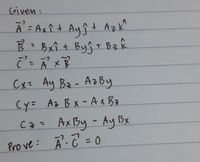 Given:
A⃗ = Axî + Ayĵ + Azk̂
B⃗ = Bxî + Byĵ + Bzk̂
C⃗ = A⃗ x B⃗
Cx = Ay Bz - AzBy
Cy = Az Bx - AxBz
Cz = AxBy - AyBx
Prove: A⃗ · C⃗ = 0